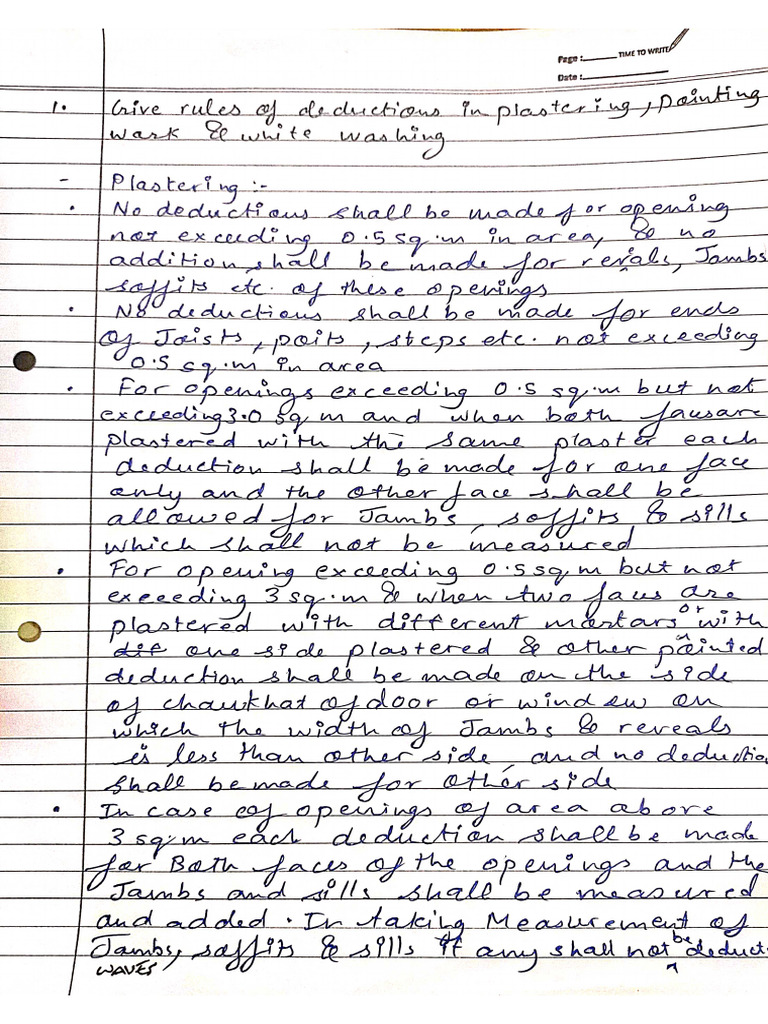 Page : TIME TO WRITE
Date :
1. Give rules of deductions in plastering, pointing
work & white washing
- Plastering :-
• No deductions shall be made for opening
not exceeding 0.5 sq.m in area, & no
addition shall be made for revials, Jambs
soffits etc. of these openings
• No deductions shall be made for ends
of Joists, poits, steps etc. not exceeding
0.5 sq.m in area
• For openings exceeding 0.5 sq.m but not
exceeding 3.0 sq m and when both faus are
plastered with the same plaster each
deduction shall be made for one face
only and the other face shall be
allowed for Jambs, soffits & sills
which shall not be measured
• For opening exceeding 0.5 sq.m but not
exceeding 3 sq.m & when two faus are
plastered with different mortars or with
one side plastered & other pointed
deduction shall be made on the side
of chaukhat of door or window on
which the width of Jambs & reveals
is less than other side, and no deduction
shall be made for other side
• In case of openings of area above
3 sq.m each deduction shall be made
for Both faces of the openings and the
Jambs and sills shall be measured
and added. In taking Measurement of
Jambs, soffits & sills if any shall not be deduct
WAVES